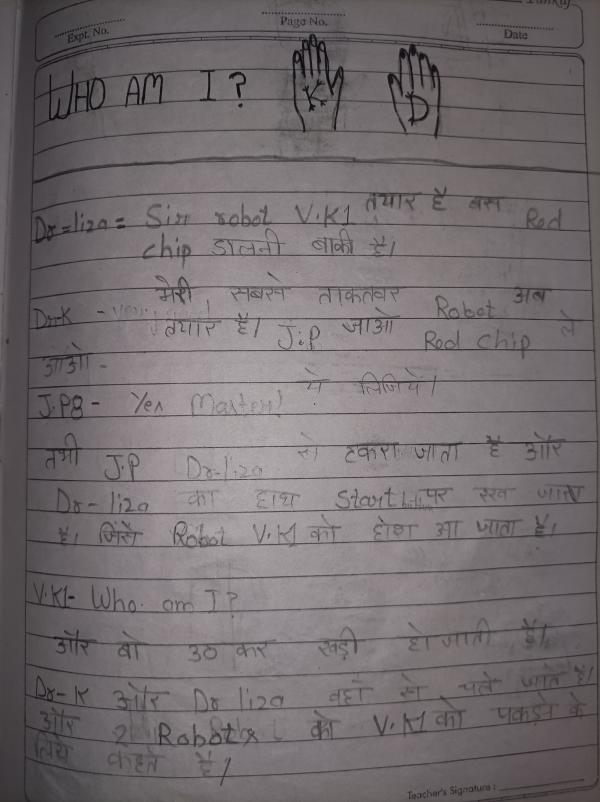 Expt. No.
Page No.
Date
WHO AM I?
K
D
Dr=liza = Sir robot V.K1 तयार है बस Red
chip डालनी बाकी है।
Dr-K - मेरी सबसे ताकतवर Robot अब
तयार है। J.P जाओ Red chip ले
आओ-
J.P8- Yes Master! ये लिजिये।
तभी J.P Dr-liza से टकरा जाता है और
Dr-liza का हाथ Start पर रख जाता
है। जिसे Robot V.K1 को होश आ जाता है।
V.K1- Who am I?
और वो उठ कर खड़ी हो जाती है।
Dr-K और Dr liza वहां से चले जाते है।
और 2 Robots को V.K1 को पकड़ने के
लिये कहते है।
Teacher's Signature :